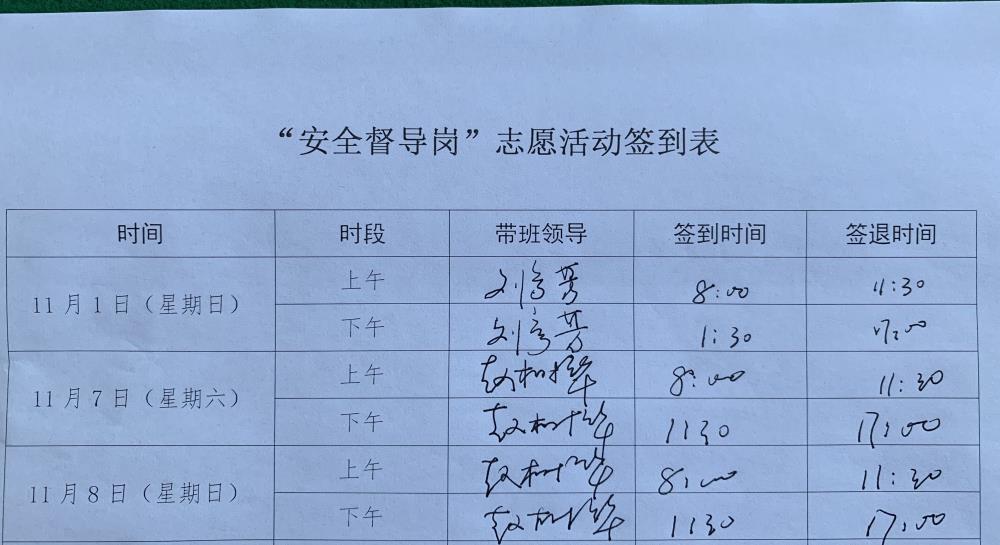 “安全督导岗”志愿活动签到表
时间 时段 带班领导 签到时间 签退时间
11月1日（星期日） 上午 刘 芳 8:00 11:30
下午 刘 芳 1:30 17:00
11月7日（星期六） 上午 赵 8:00 11:30
下午 赵 1130 17:00
11月8日（星期日） 上午 赵 8:00 11:30
下午 赵 1130 17:00